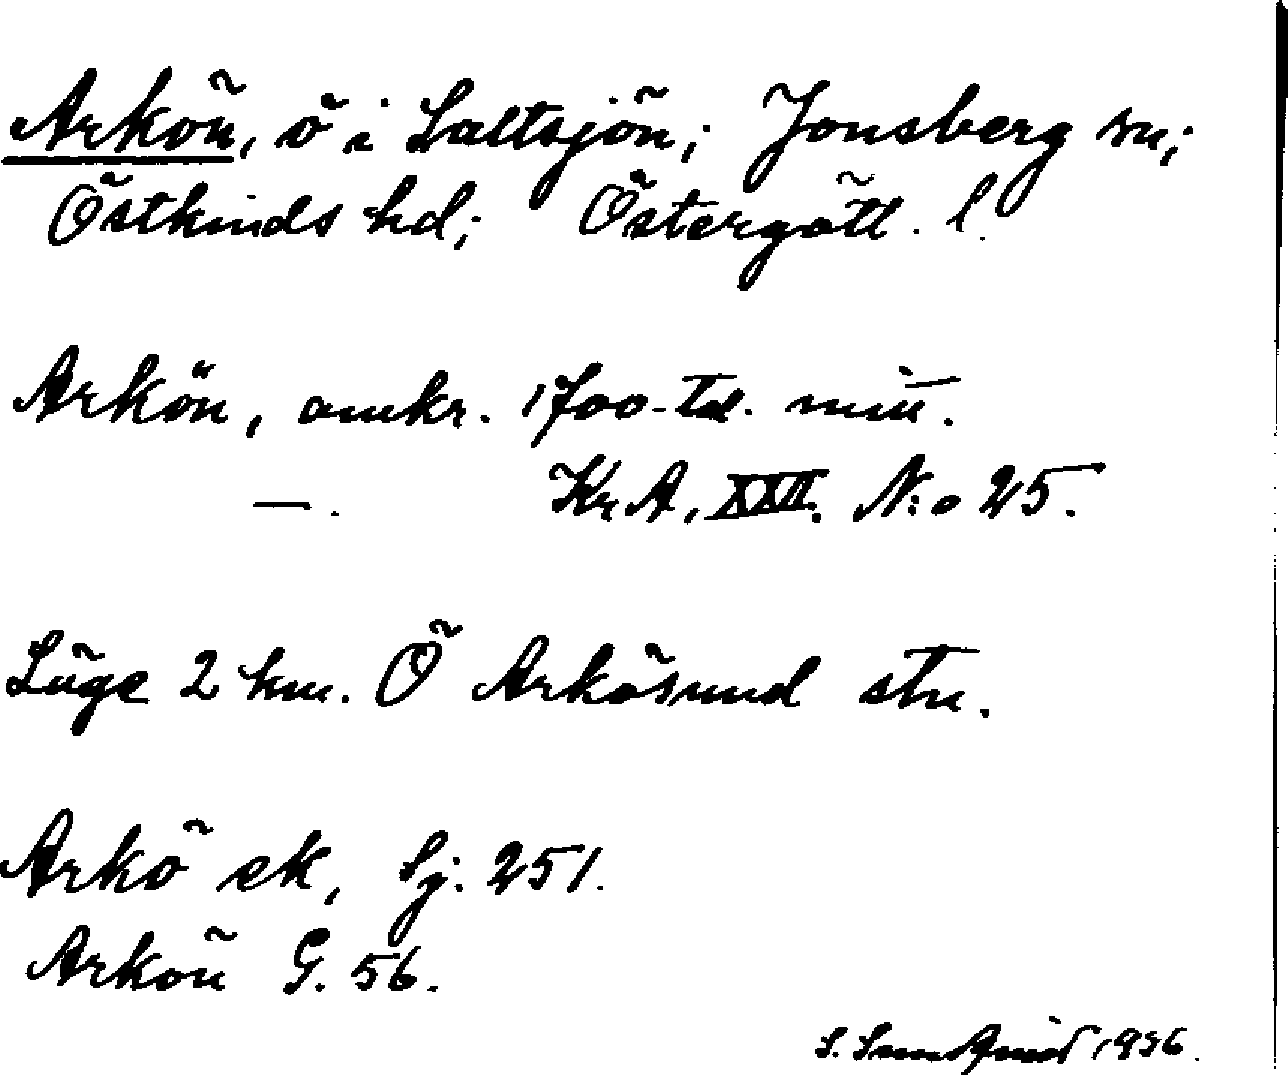 Arkön, ö i Saltsjön; Jonsberg sn;
Östkinds hd; Östergötl. l.
Arkön, omkr. 1700-tal. mitt.
—. Kr A, XXII. N:o 25.
Läge 2 km. Ö Arkösund stn.
Arkö ek, Sj. 251.
Arkön G. 56.
S. 1936.